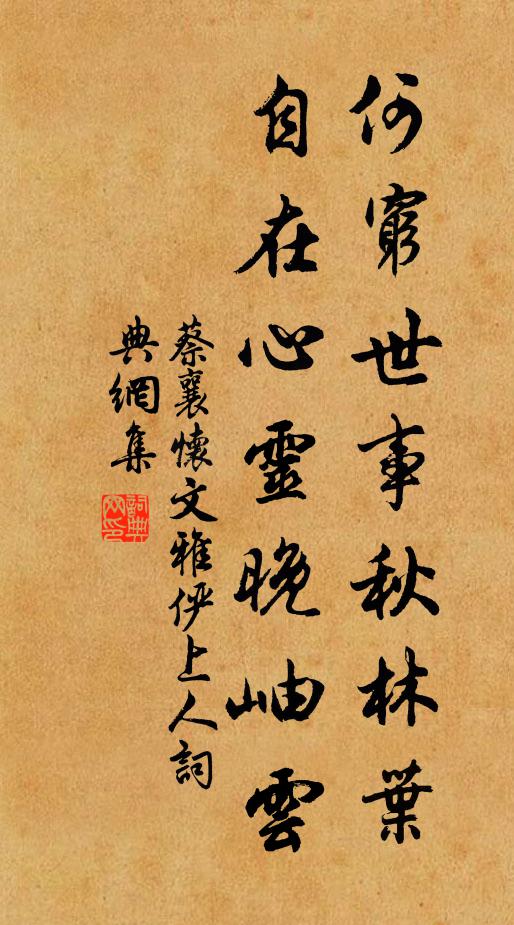 何窮世事秋林葉
自在心靈晚岫雲
蔡襄懷文雅伊上人詞
典網集
詞典網印